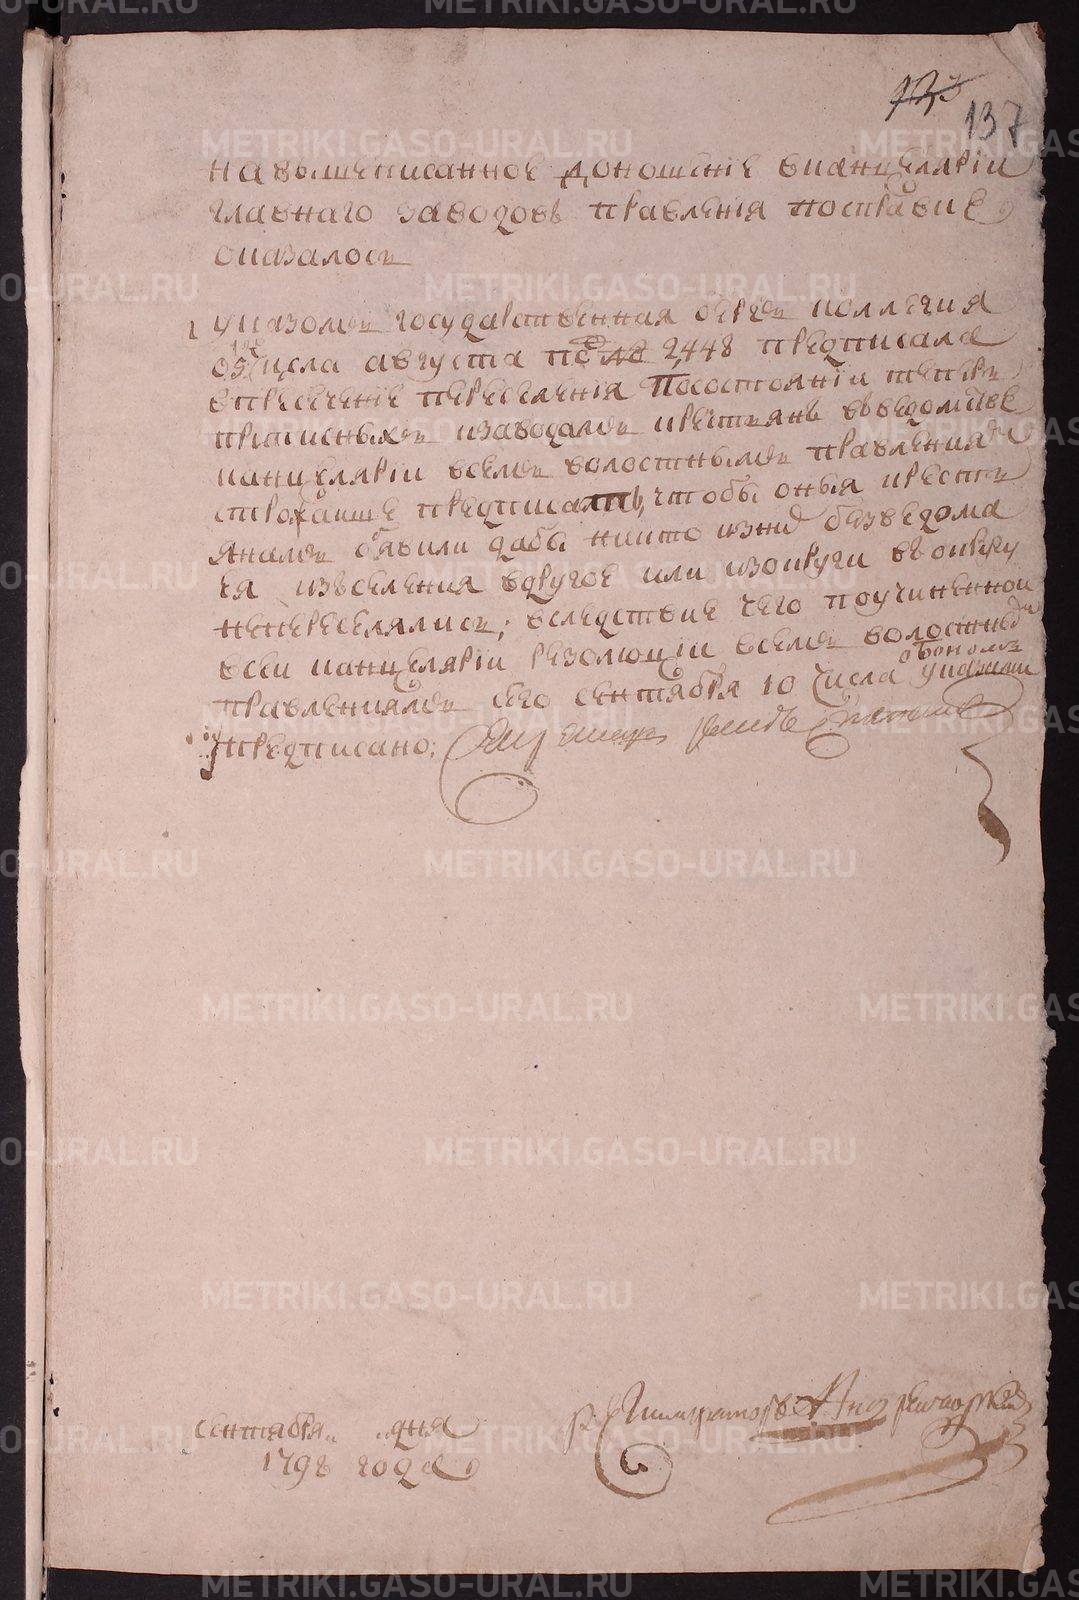 137
на вышеписанное доношение вканцелярии
главнаго заводовъ правления посправке
оказалось
1 указомъ государственная бергъ коллегия
отъ числа августа по № 2448 предписала
впресечение переселения посостоянии теперь
приписныхъ кзаводамъ крестьянъ вьведомстве
канцелярии всемъ волостнымъ правлениям
строжайше предписать, чтобы оныя кресть
янамъ обявили дабы никто изних безведома
ея изьселения вдругое или изокруги въ округу
непереселялись; вследствие чего поучиненной
всей канцелярии резолюции всемъ волостным
правлениямъ сего сентября 10 числа обономъ указами
предписано:
сентября дня
1798 года
METRIKI.GASO-URAL.RU